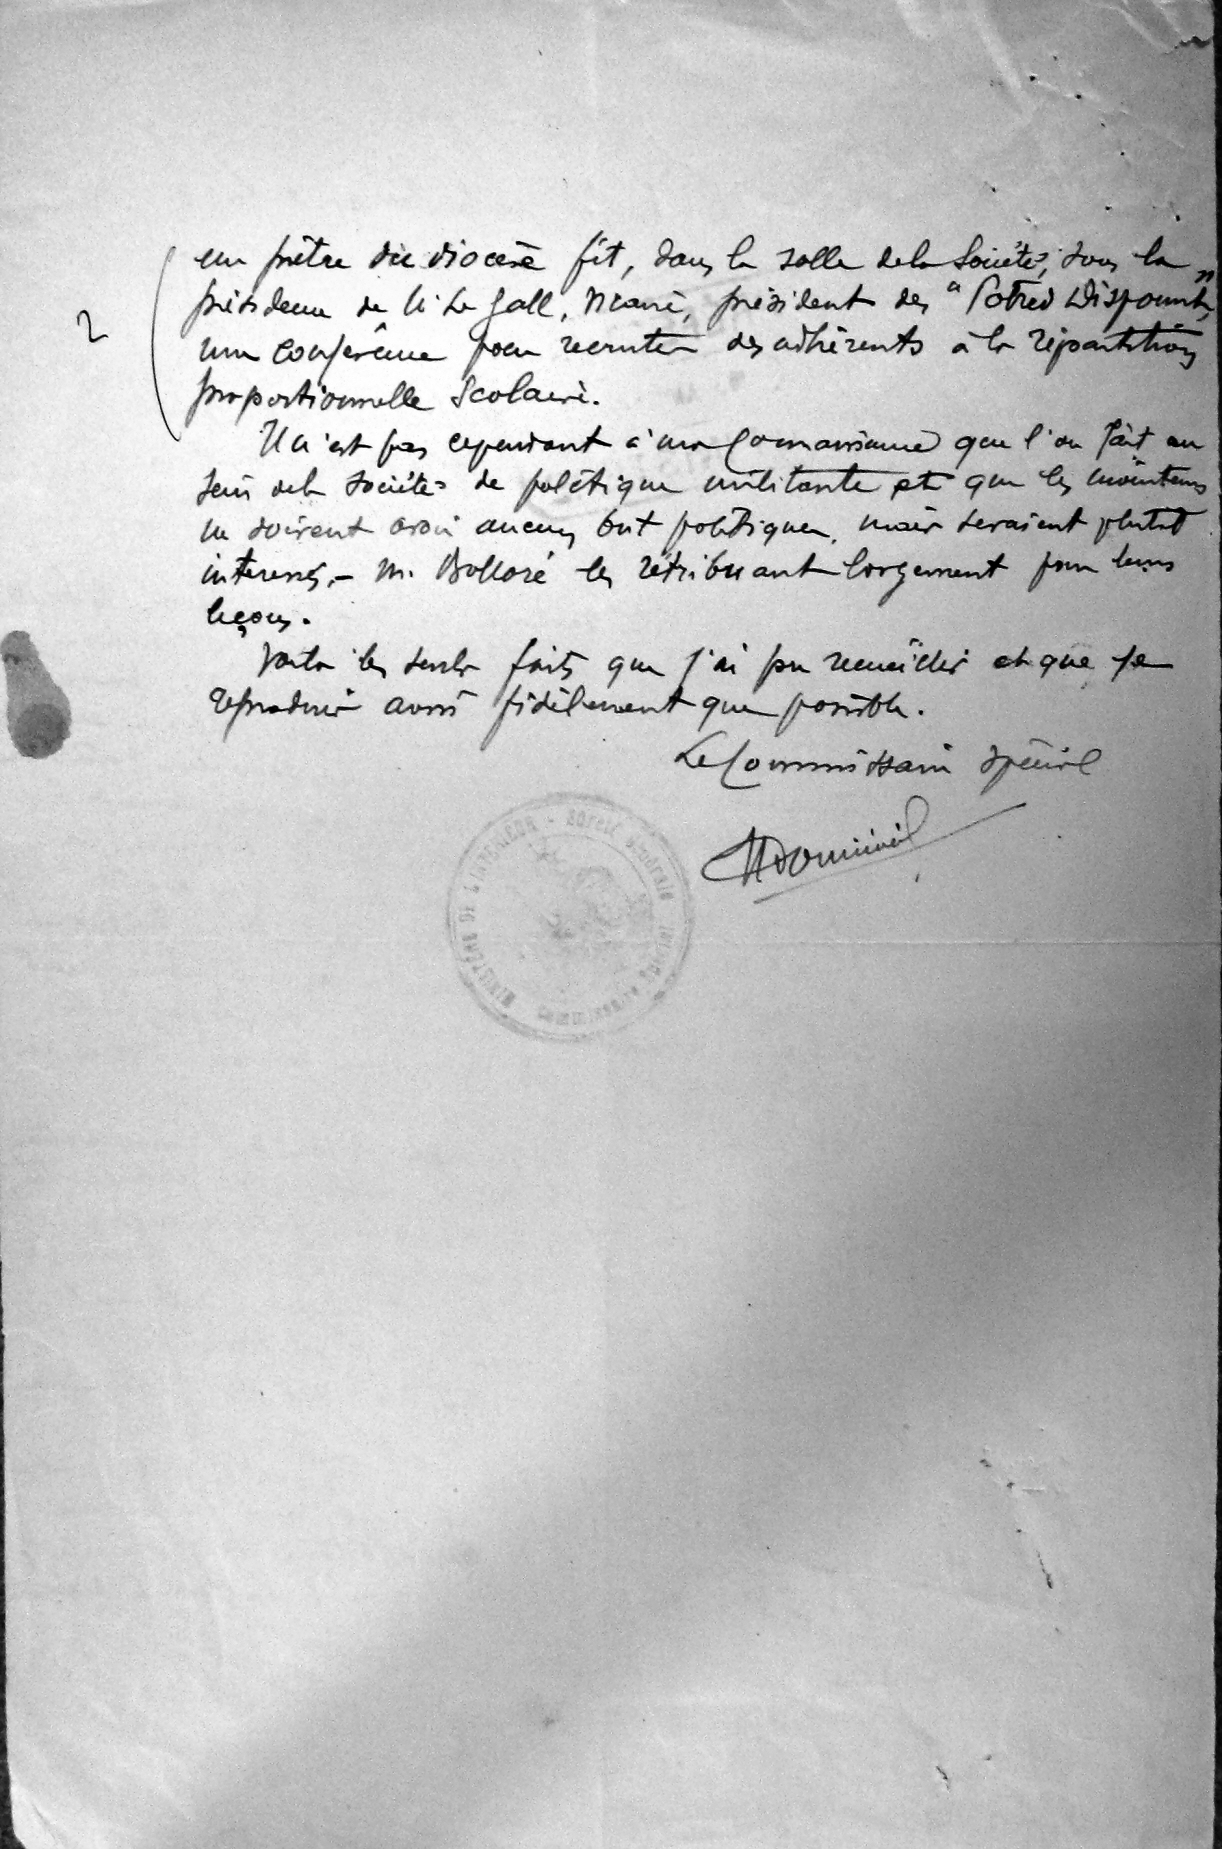 un prêtre du diocèse fit, dans la salle de la Société, sous la
présidence de M. Le Gall, Maire, président des "Potred Dispount",
une conférence pour recruter des adhérents à la répartition
proportionnelle scolaire.
2
Il n'est pas cependant à ma connaissance que l'on fait au
sein de la société de politique militante et que les moniteurs
ne doivent avoir aucun but politique, mais seraient plutôt
interessés, - M. Bolloré les rétribuant largement pour leurs
leçons.
Voila les seuls faits que j'ai pu recueillir et que je
reproduis aussi fidèlement que possible.
Le Commissaire spécial
MINISTÈRE DE L'INTÉRIEUR - Sûreté Générale
Commissaire Spécial